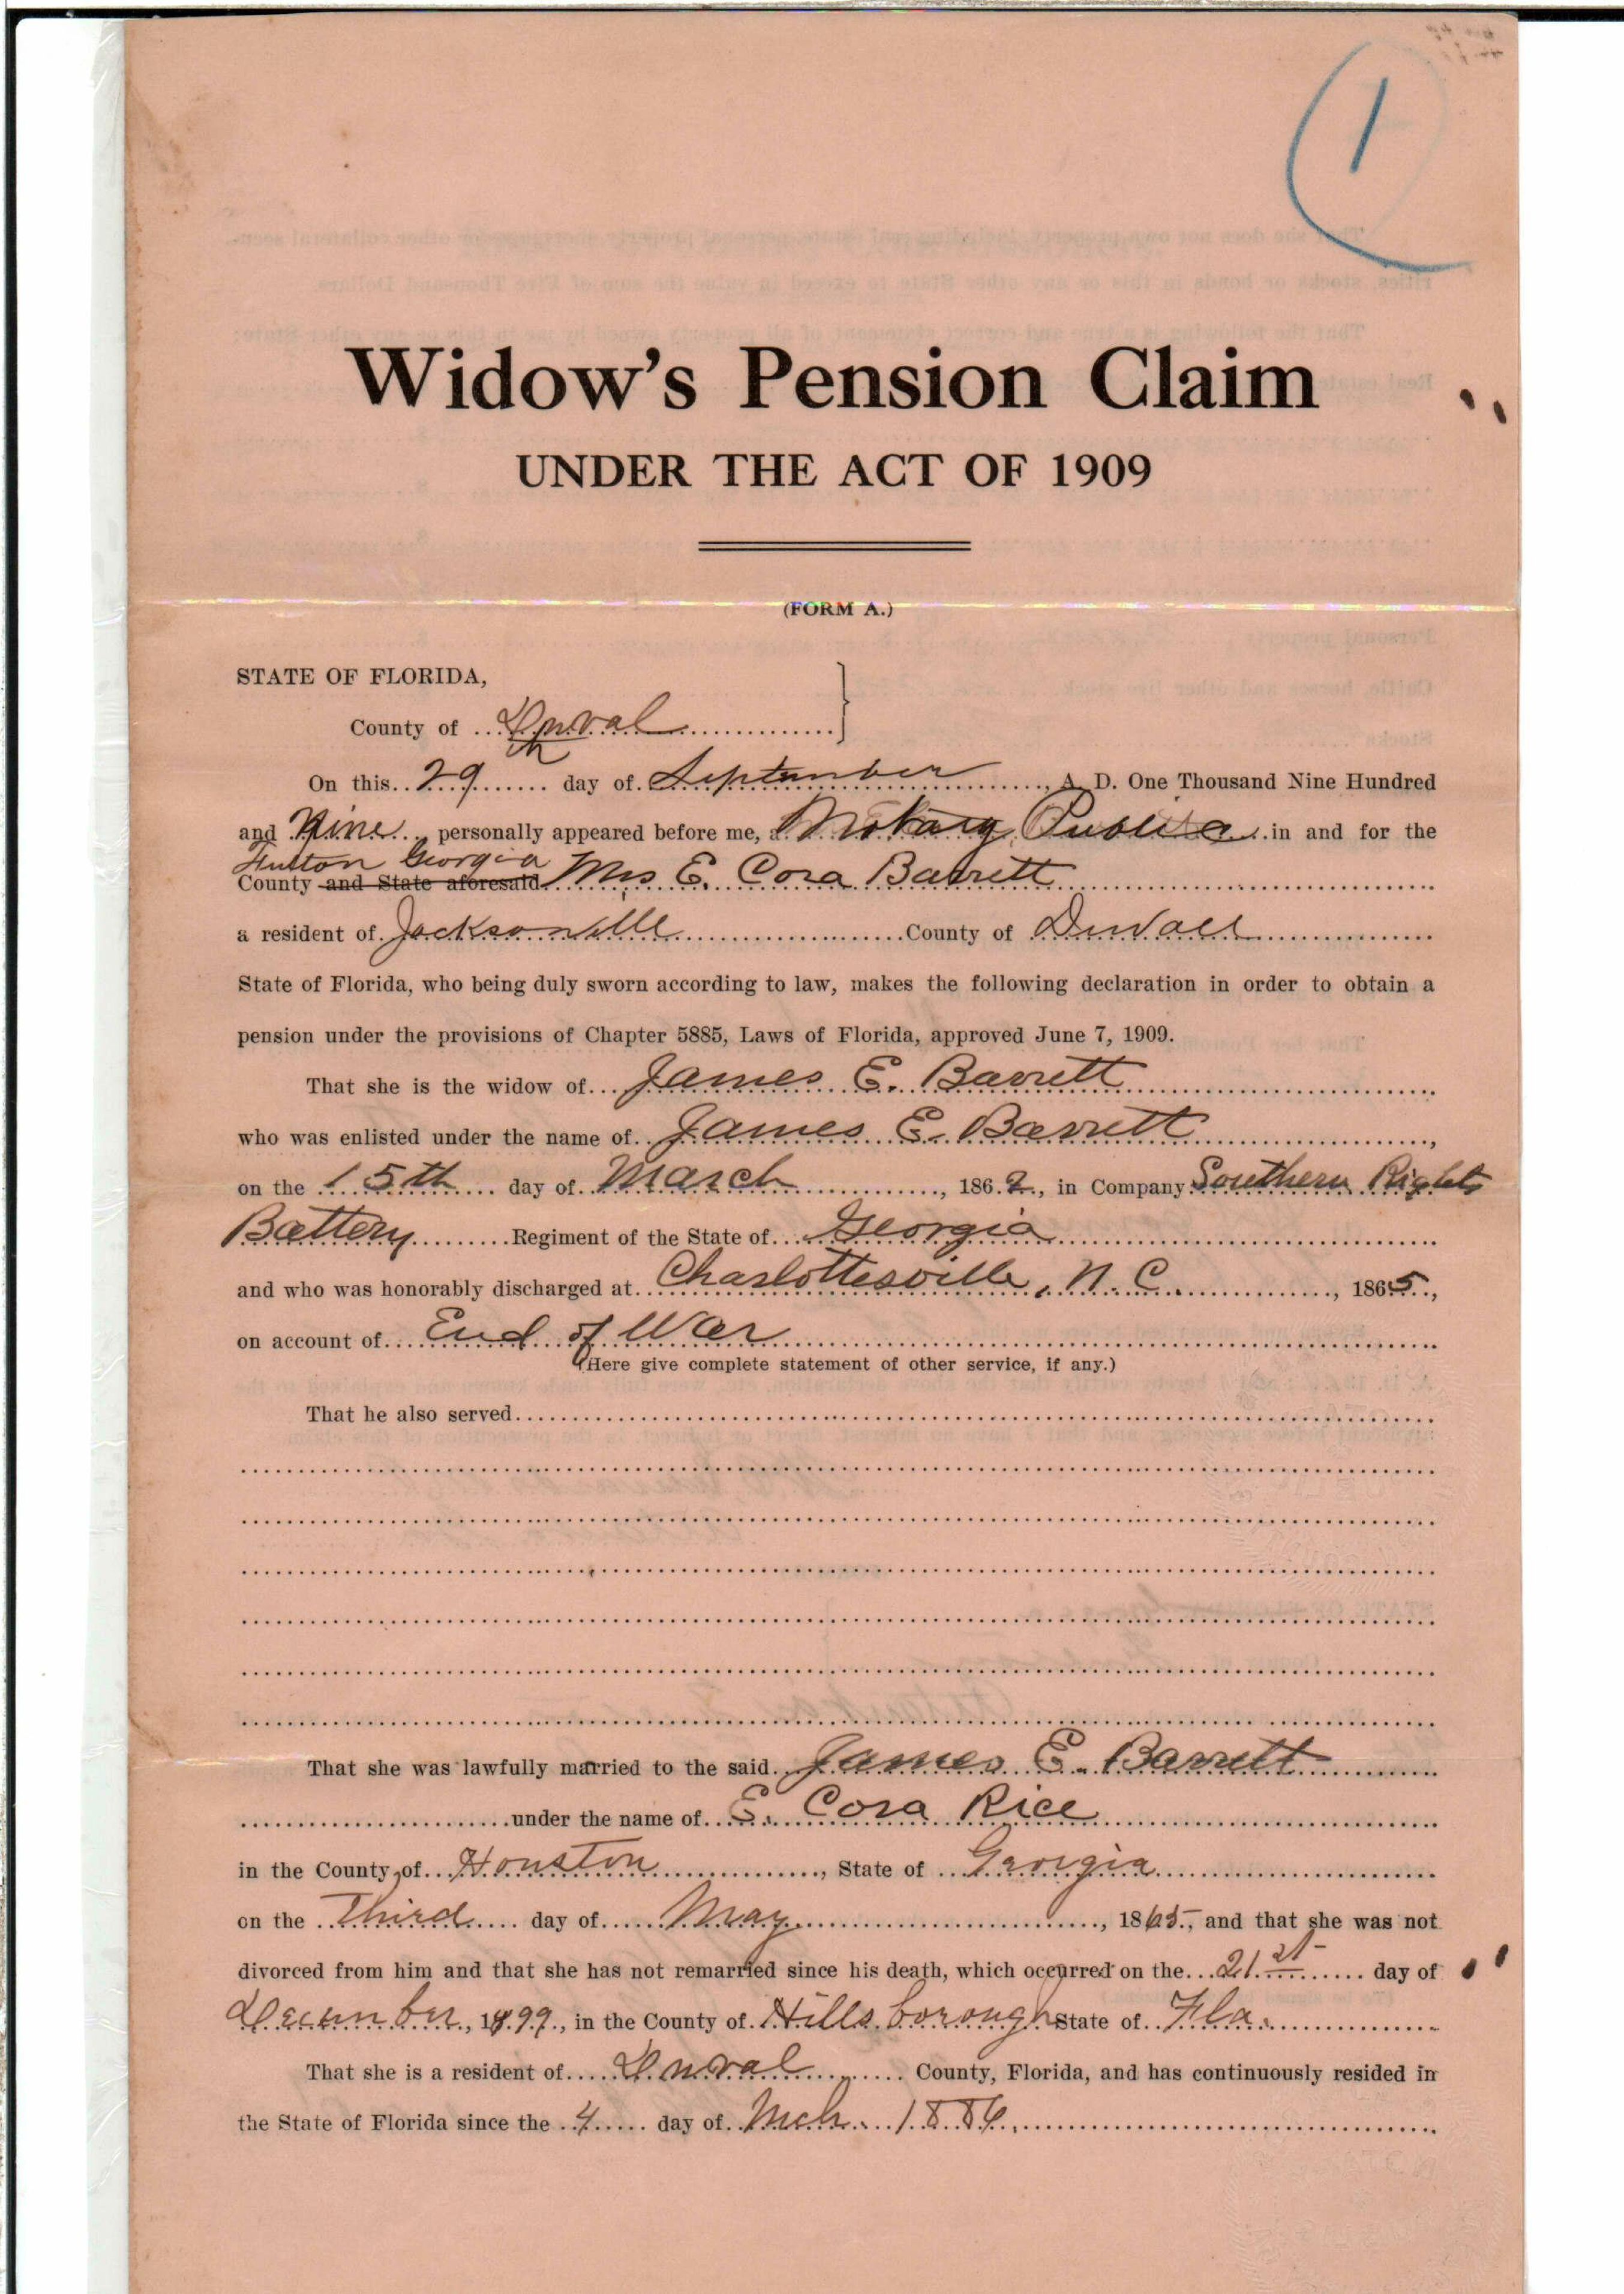 1
Widow's Pension Claim
UNDER THE ACT OF 1909
(FORM A.)
STATE OF FLORIDA,
County of Duval
On this 29th day of September, A. D. One Thousand Nine Hundred
and Nine personally appeared before me, a Notary Public in and for the
Fulton Georgia
County and State aforesaid Mrs E. Cora Barrett
a resident of Jacksonville County of Duvall
State of Florida, who being duly sworn according to law, makes the following declaration in order to obtain a
pension under the provisions of Chapter 5885, Laws of Florida, approved June 7, 1909.
That she is the widow of James E. Barrett
who was enlisted under the name of James E. Barrett,
on the 15th day of March, 1862, in Company Southern Rights
Battery Regiment of the State of Georgia
and who was honorably discharged at Charlottesville, N. C., 1865,
on account of End of War
(Here give complete statement of other service, if any.)
That he also served
That she was lawfully married to the said James E. Barrett
under the name of E. Cora Rice
in the County of Houston, State of Georgia
on the Third day of May, 1865, and that she was not
divorced from him and that she has not remarried since his death, which occurred on the 21st day of
December, 1899, in the County of Hillsborough State of Fla.
That she is a resident of Duval County, Florida, and has continuously resided in
the State of Florida since the 4 day of Mch. 1886.